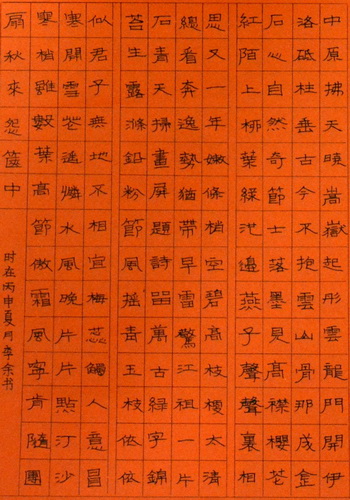 中原拂天曉嵩嶽起彤雲龍門開伊
洛砥柱垂古今不抱雲山骨那成金
石心自然奇節士落墨見高襟櫻花
紅陌上柳葉綠池邊燕子聲聲裏相
思又一年嫩條梢空碧高枝梗太清
總看奔逸勢猶帶早雷驚江祖一片
石青天掃畫屏題詩留萬古綠字錦
苔生露滌鉛粉節風搖青玉枝依依
似君子無地不相宜梅蕊觸人意冒
寒開雪花遙憐水風晚片片點汀沙
寒柏雖數葉高節傲霜風寧肯隨團
扇秋來怨篋中
时在丙申夏月